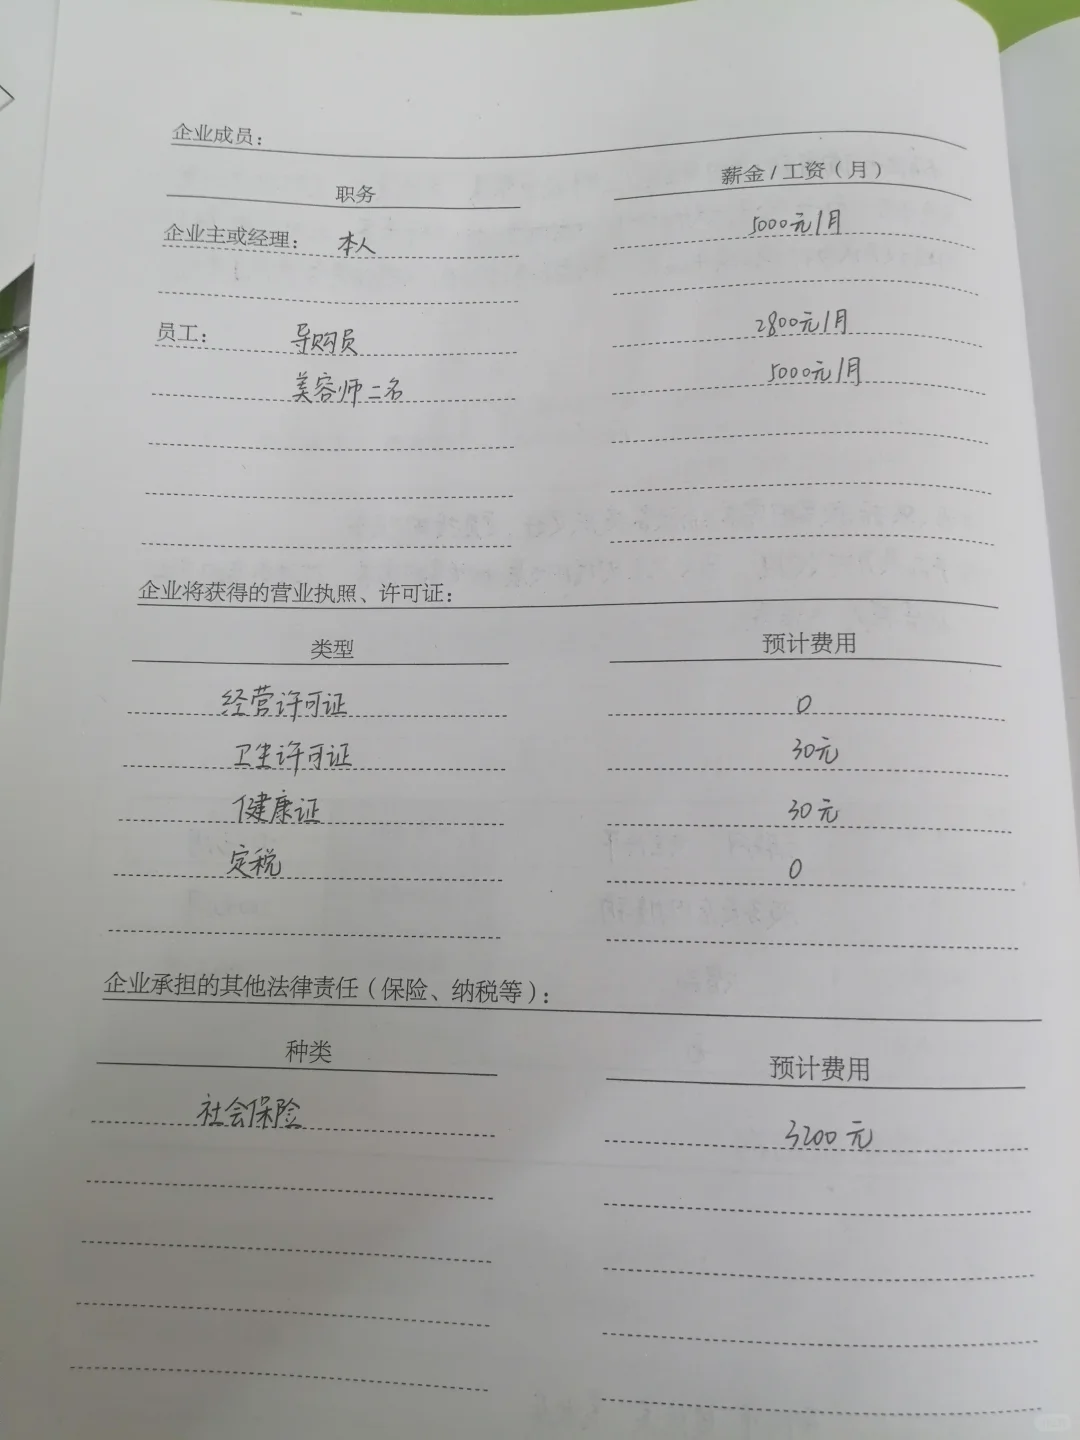 企业成员：
职务 薪金/工资（月）
企业主或经理： 本人 5000元/月
员工： 导购员 2800元/月
美容师二名 5000元/月
企业将获得的营业执照、许可证：
类型 预计费用
经营许可证 0
卫生许可证 30元
健康证 30元
定税 0
企业承担的其他法律责任（保险、纳税等）：
种类 预计费用
社会保险 3200元